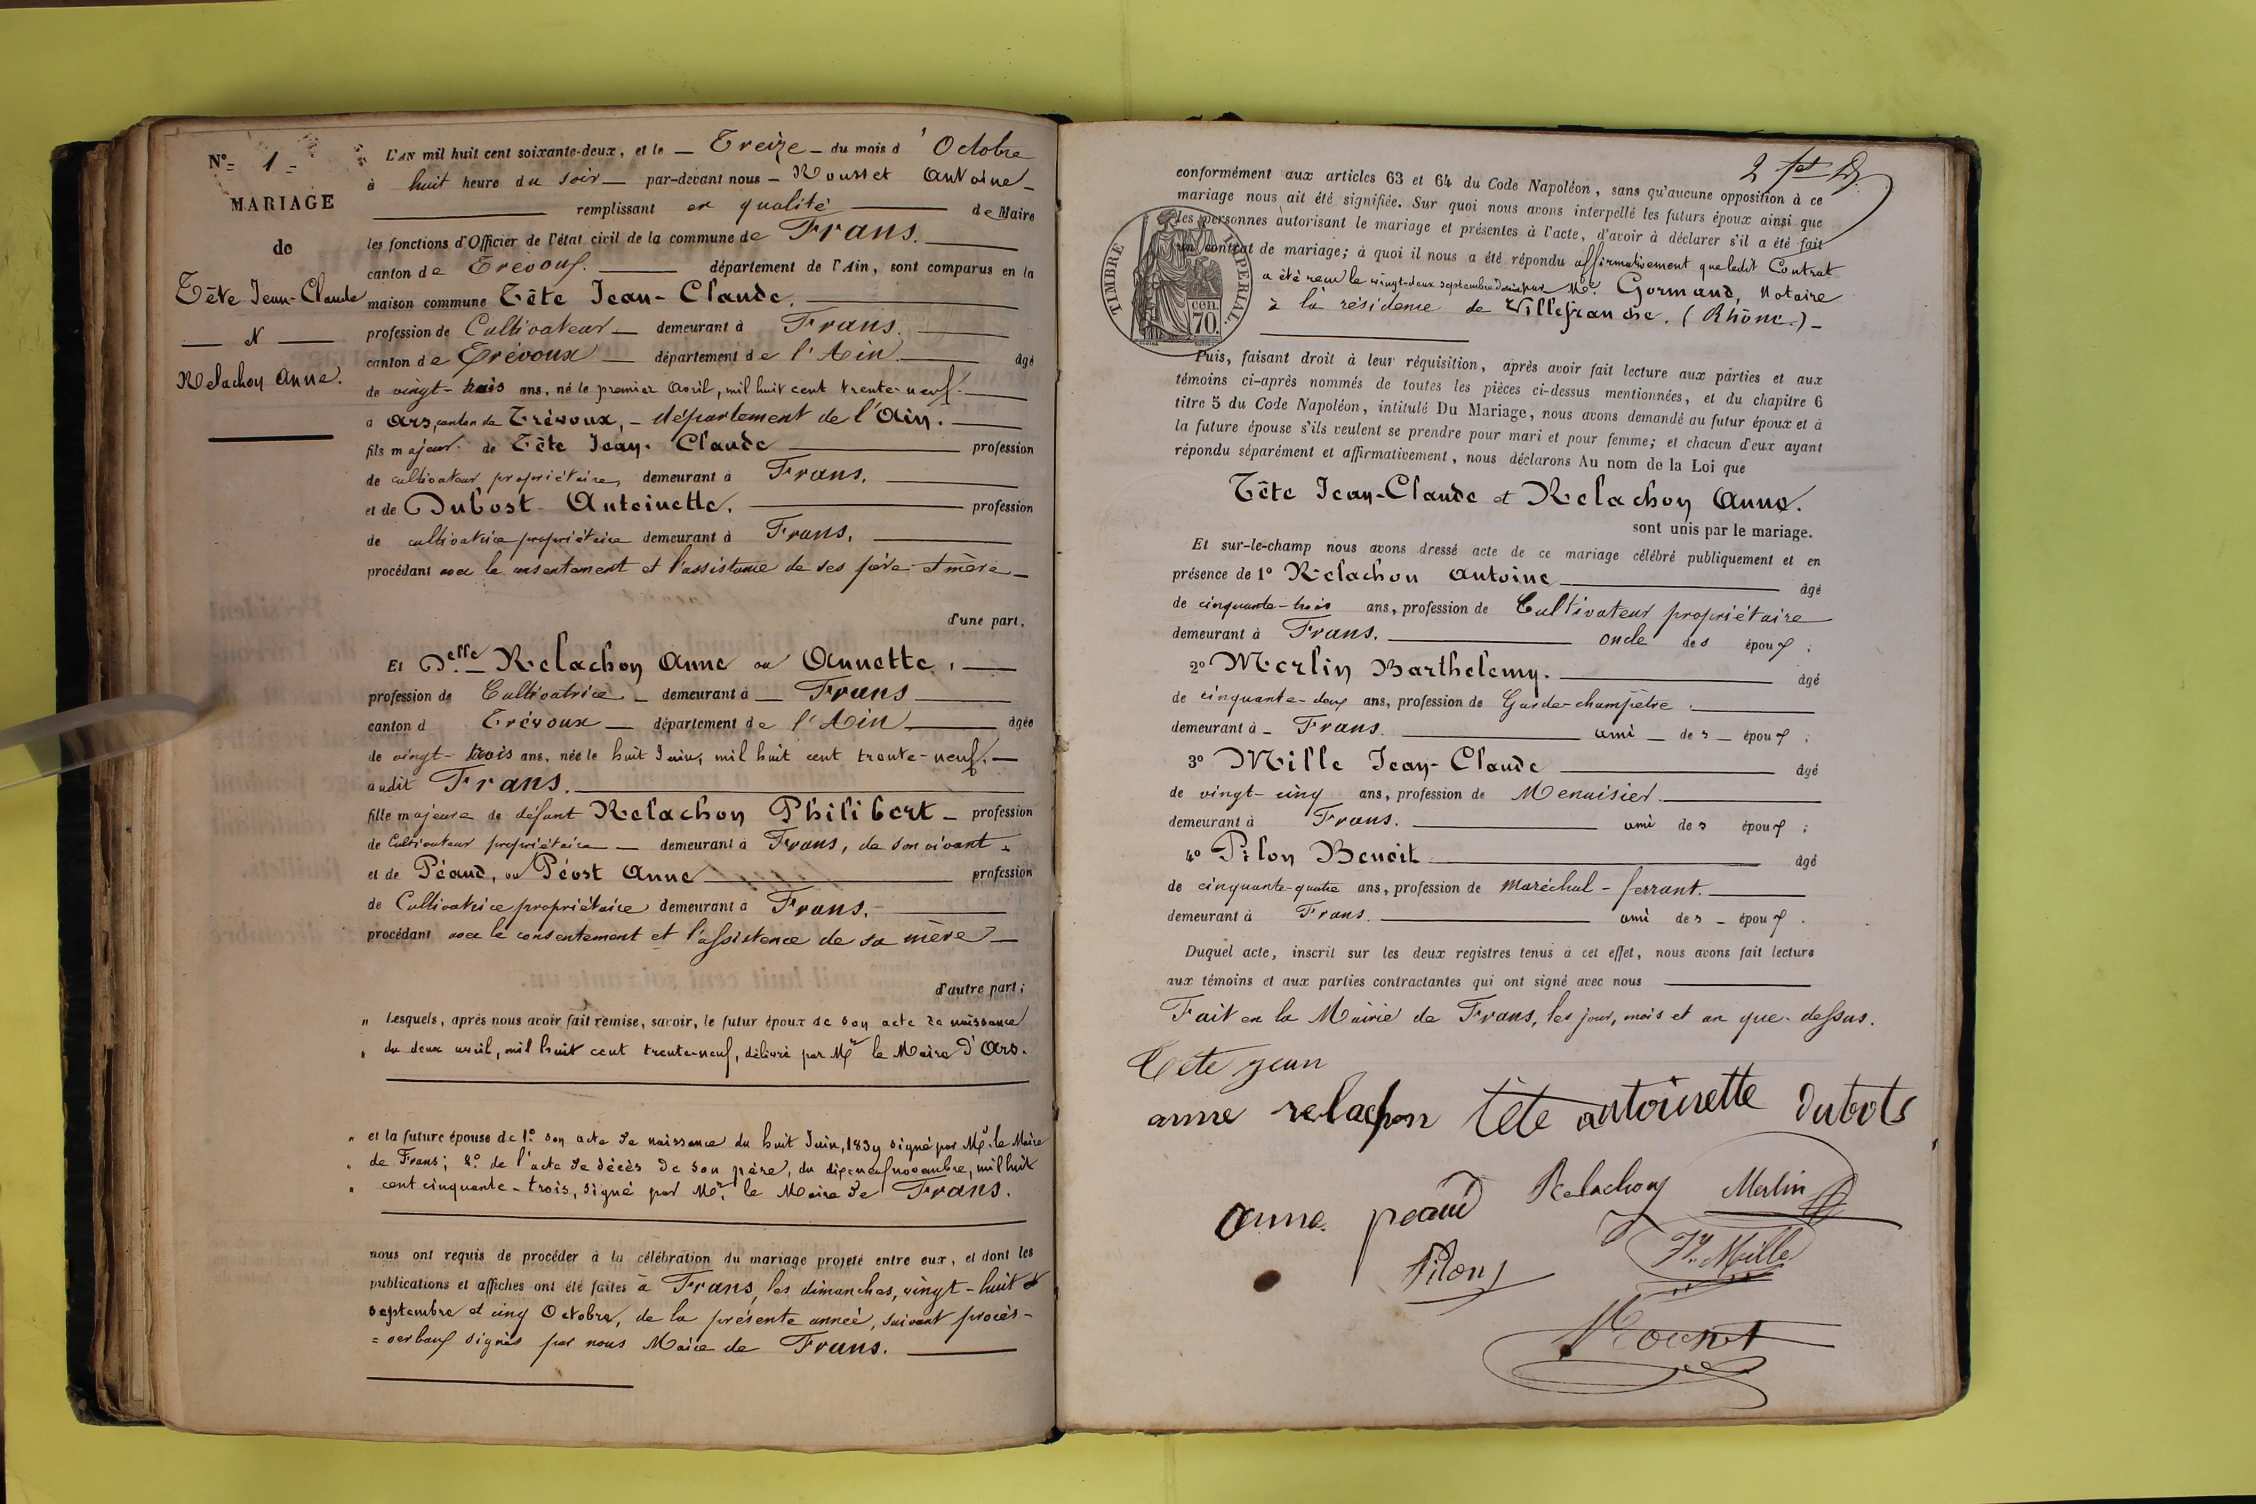 N° 1
MARIAGE
de
Tête Jean-Claude
&
Relachon Anne.
L'AN mil huit cent soixante-deux, et le Treize du mois d'Octobre
à huit heure du soir par-devant nous Rousset Antoine
remplissant en qualité de Maire
les fonctions d'Officier de l'état civil de la commune de Frans.
canton de Trévoux. département de l'Ain, sont comparus en la
maison commune Tête Jean-Claude.
profession de Cultivateur demeurant à Frans.
canton de Trévoux département de l'Ain âgé
de vingt-trois ans, né le premier Avril, mil huit cent trente-neuf.
à Ars, canton de Trévoux, département de l'Ain.
fils majeur de Tête Jean-Claude profession
de cultivateur propriétaire, demeurant à Frans.
et de Dubost Antoinette. profession
de cultivatrice propriétaire demeurant à Frans.
procédant avec le consentement et l'assistance de ses père et mère
d'une part.
Et Delle Relachon Anne ou Annette,
profession de Cultivatrice demeurant à Frans
canton d Trévoux département de l'Ain âgée
de vingt-trois ans, née le huit Juin, mil huit cent trente-neuf.
audit Frans.
fille majeure de défunt Relachon Philibert profession
de Cultivateur propriétaire demeurant à Frans, de son vivant
et de Péaud, ou Péost Anne profession
de Cultivatrice propriétaire demeurant à Frans.
procédant avec le consentement et l'assistence de sa mère
d'autre part;
" Lesquels, après nous avoir fait remise, savoir, le futur époux de son acte de naissance
" du deux avril, mil huit cent trente-neuf, délivré par Mr le Maire d'Ars.
" et la future épouse de 1° son acte de naissance du huit Juin, 1839 signé par Mr le Maire
" de Frans; 2° de l'acte de décès de son père, du dix-neuf novembre, mil huit
" cent cinquante-trois, signé par Mr le Maire de Frans.
nous ont requis de procéder à la célébration du mariage projeté entre eux, et dont les
publications et affiches ont été faites à Frans, les dimanches, vingt-huit
septembre et cinq Octobre, de la présente année, suivant procès-
=verbaux signés par nous Maire de Frans.
conformément aux articles 63 et 64 du Code Napoléon, sans qu'aucune opposition à ce
mariage nous ait été signifiée. Sur quoi nous avons interpellé les futurs époux ainsi que
les personnes autorisant le mariage et présentes à l'acte, d'avoir à déclarer s'il a été fait
un contrat de mariage; à quoi il nous a été répondu affirmativement que ledit Contrat
a été reçu le vingt-deux septembre par Me Gormand, Notaire
à la résidence de Villefranche. (Rhône.)
TIMBRE IMPERIAL.
70 cen.
Puis, faisant droit à leur réquisition, après avoir fait lecture aux parties et aux
témoins ci-après nommés de toutes les pièces ci-dessus mentionnées, et du chapitre 6
titre 5 du Code Napoléon, intitulé Du Mariage, nous avons demandé au futur époux et à
la future épouse s'ils veulent se prendre pour mari et pour femme; et chacun d'eux ayant
répondu séparément et affirmativement, nous déclarons Au nom de la Loi que
Tête Jean-Claude et Relachon Anne.
sont unis par le mariage.
Et sur-le-champ nous avons dressé acte de ce mariage célébré publiquement et en
présence de 1° Relachon Antoine âgé
de cinquante-trois ans, profession de Cultivateur propriétaire
demeurant à Frans. oncle des époux;
2° Merlin Barthelemy. âgé
de cinquante-deux ans, profession de Garde-champêtre.
demeurant à Frans. ami des époux;
3° Mille Jean-Claude âgé
de vingt-cinq ans, profession de Menuisier.
demeurant à Frans. ami des époux;
4° Pilon Benoit âgé
de cinquante-quatre ans, profession de maréchal-ferrant.
demeurant à Frans. ami des époux.
Duquel acte, inscrit sur les deux registres tenus à cet effet, nous avons fait lecture
aux témoins et aux parties contractantes qui ont signé avec nous
Fait en la Mairie de Frans, les jour, mois et an que dessus.
Tete jean
anne relachon tête antoinette dubots
anne peaud Relachon Merlin
Pilon Mille
Rousset